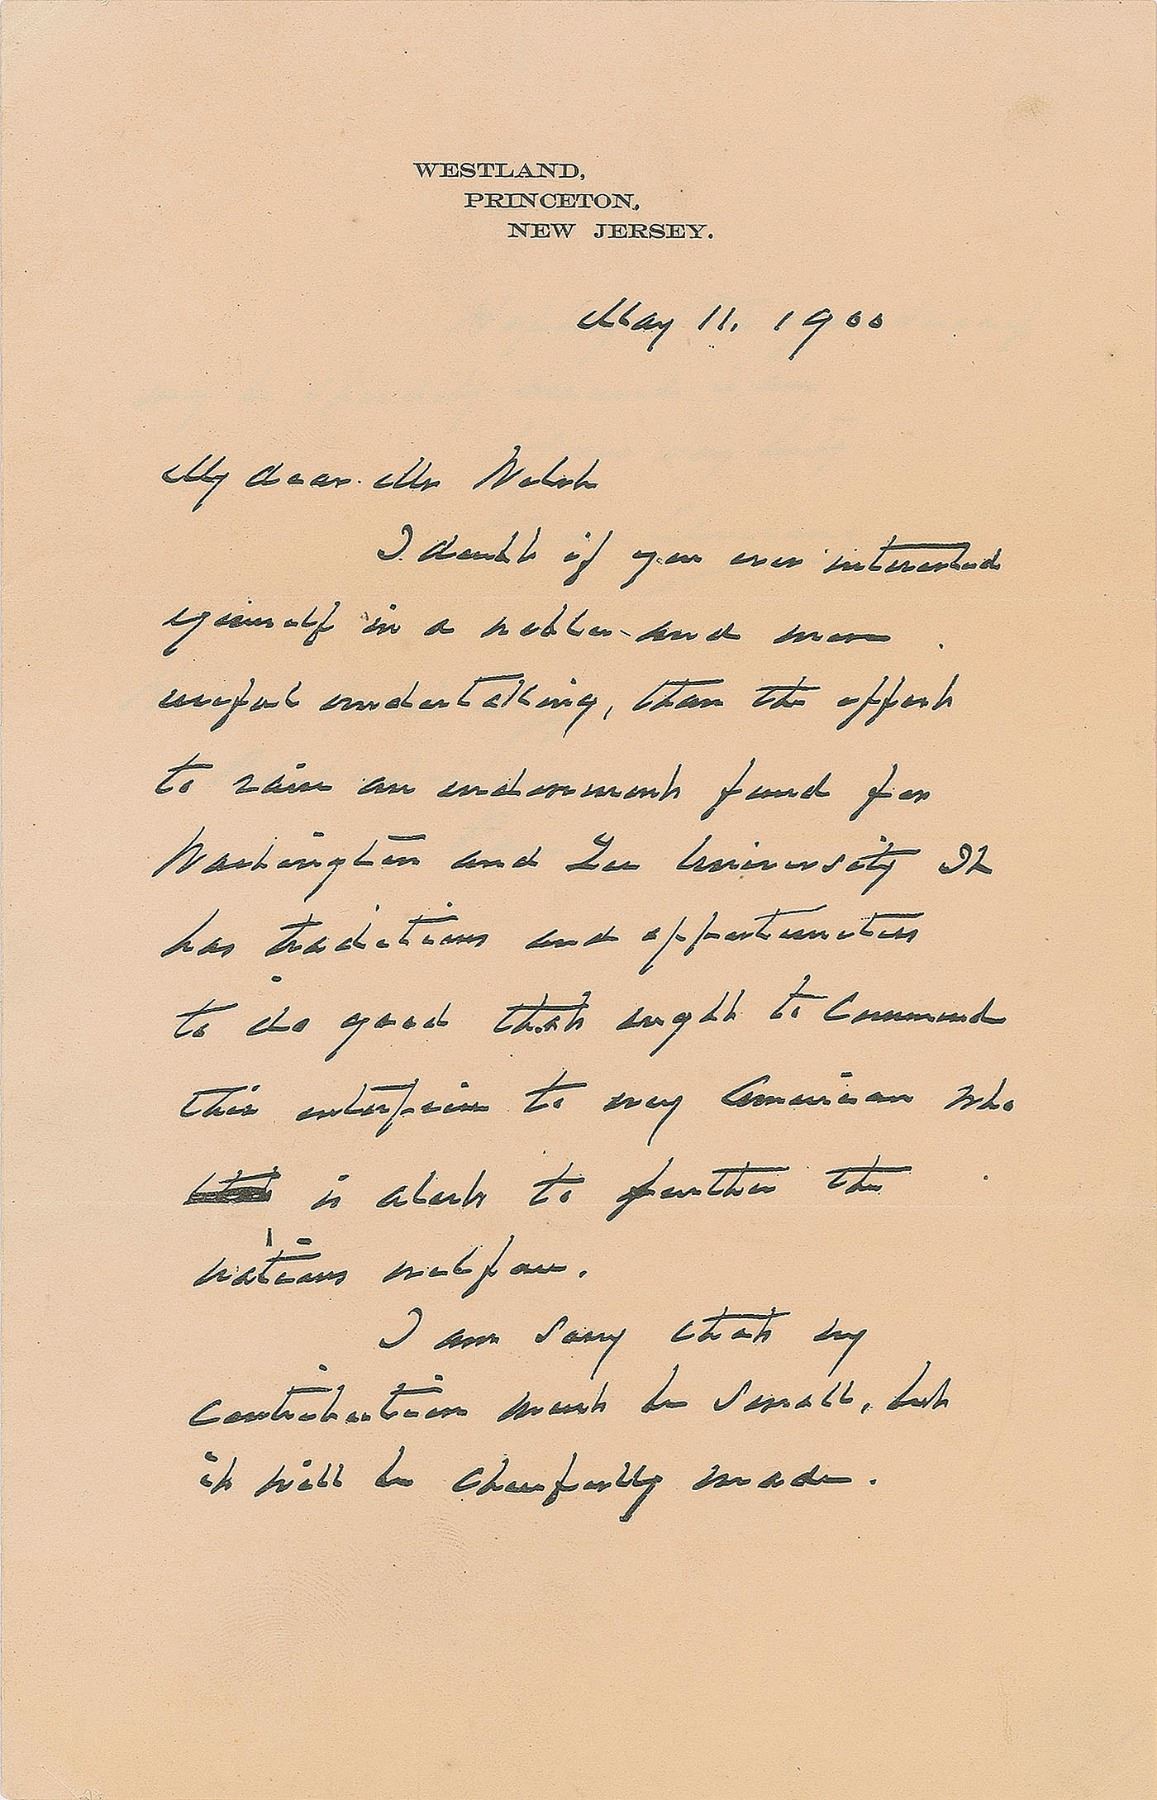 WESTLAND,
PRINCETON,
NEW JERSEY.
May 11. 1900
My dear Mr Welsh
I doubt if you ever interested
yourself in a nobler and more
useful undertaking, than the effort
to raise an endowment fund for
Washington and Lee University It
has traditions and opportunities
to do good that ought to Commend
this enterprise to every American who
is alert to further the
nations welfare.
I am sorry that my
contribution must be small, but
it will be cheerfully made.